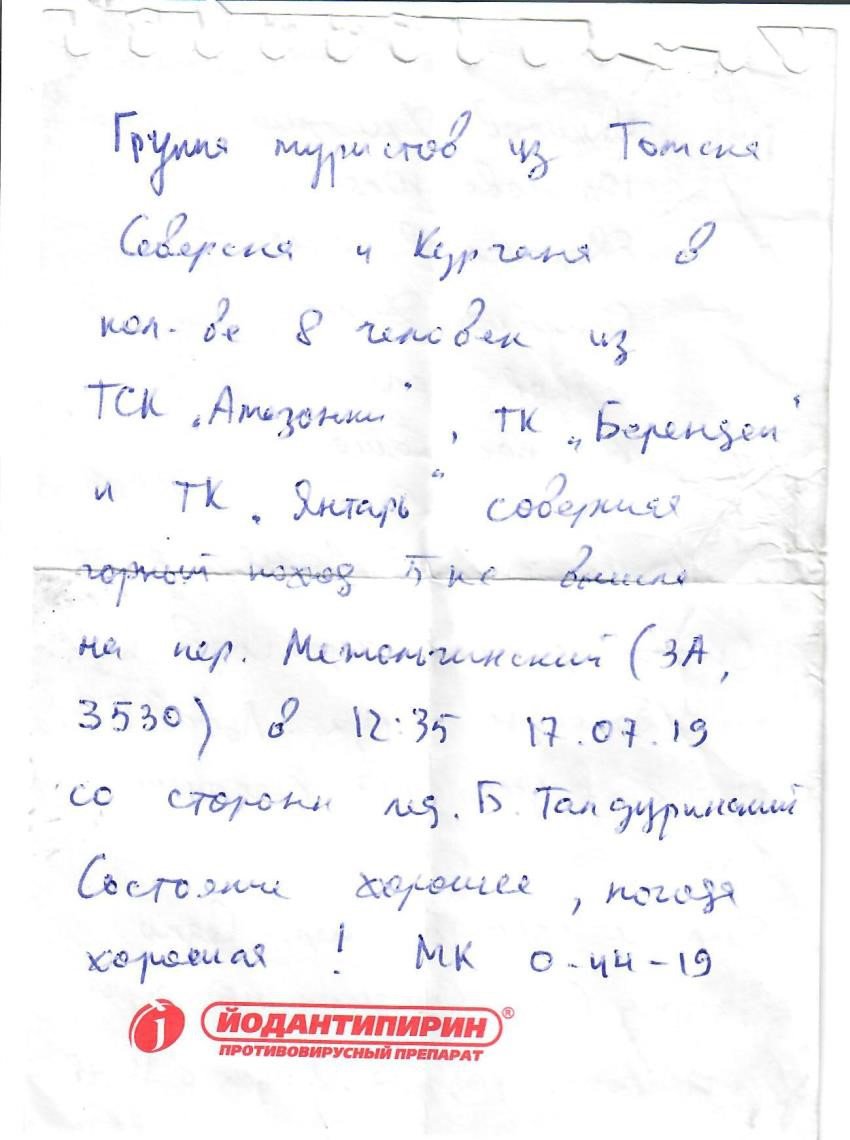 Группа туристов из Томска
Северска и Кургана в
кол-ве 8 человек из
ТСК „Амазонки“, ТК „Берендей“
и ТК „Янтарь“ совершая
горный поход 5 кс вышла
на пер. (3А,
3530) в 12:35 17.07.19
со стороны лед. Б. Талдуринский
Состояние хорошее, погода
хорошая! МК 0-44-19
ЙОДАНТИПИРИН®
ПРОТИВОВИРУСНЫЙ ПРЕПАРАТ